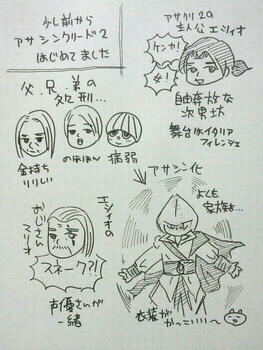 少し前から
アサシンクリード2
はじめてました
アサクリ2の
主人公エツィオ
ケンカ!
女!
自由奔放な
次男坊
舞台はイタリア
フィレンシェ
父、兄、弟の
処刑…
金持ち
りりしい
のほほん
病弱
アサシン化
よくも
家族を…
エツィオの
おじさん
マリオ
スネーク?!
声優さんが
一緒
衣装が
かっこいいい〜